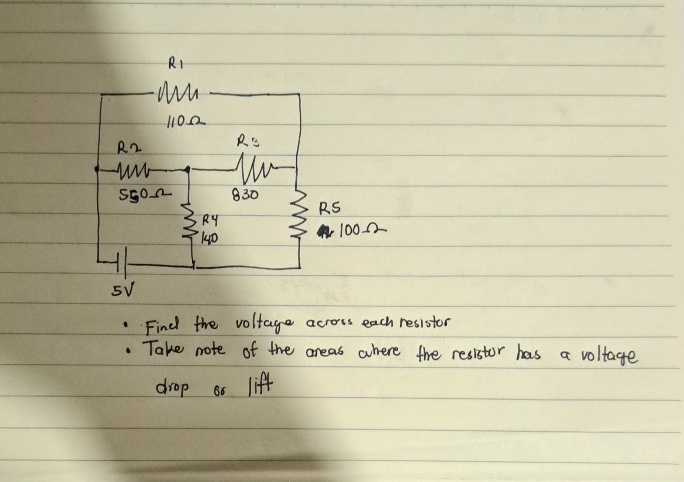 R1
110Ω
R2
R3
550Ω
830
R4
140
R5
100Ω
5V
• Find the voltage across each resistor
• Take note of the areas where the resistor has a voltage
drop or lift